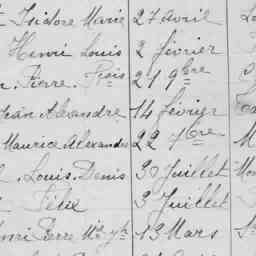 Isidore Marie 27 Avril
Henri Louis 2 février
Pierre Frois 21 9bre
Jean Alexandre 14 février
Maurice Alexandre 22 7bre
Louis Denis 30 Juillet
Félix 3 Juillet
Henri Pierre 13 Mars